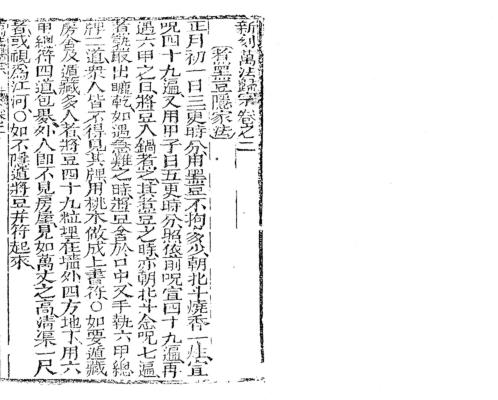 新刻萬法歸宗卷之二
煮黑豆隱家法
正月初一日三更時分用黑豆不拘多少朝北斗燒香一炷宣
呪四十九遍又用甲子日五更時分照依前呪宣四十九遍再
遇六甲之日將豆入鍋煮之其煮豆之時亦朝北斗念呪七遍
煮熟取出晒乾如遇急難之時將豆含於口中又手執六甲總
牌二道衆人皆不得見其牌用桃木做成上書符○如要遁藏
房舍及遁藏多人者將豆四十九粒埋在墻外四方地下用六
甲總符四道包裹外人卽不見房屋見如萬丈之高清渠一尺
皆或視爲江河○如不隱遁將豆幷符起來